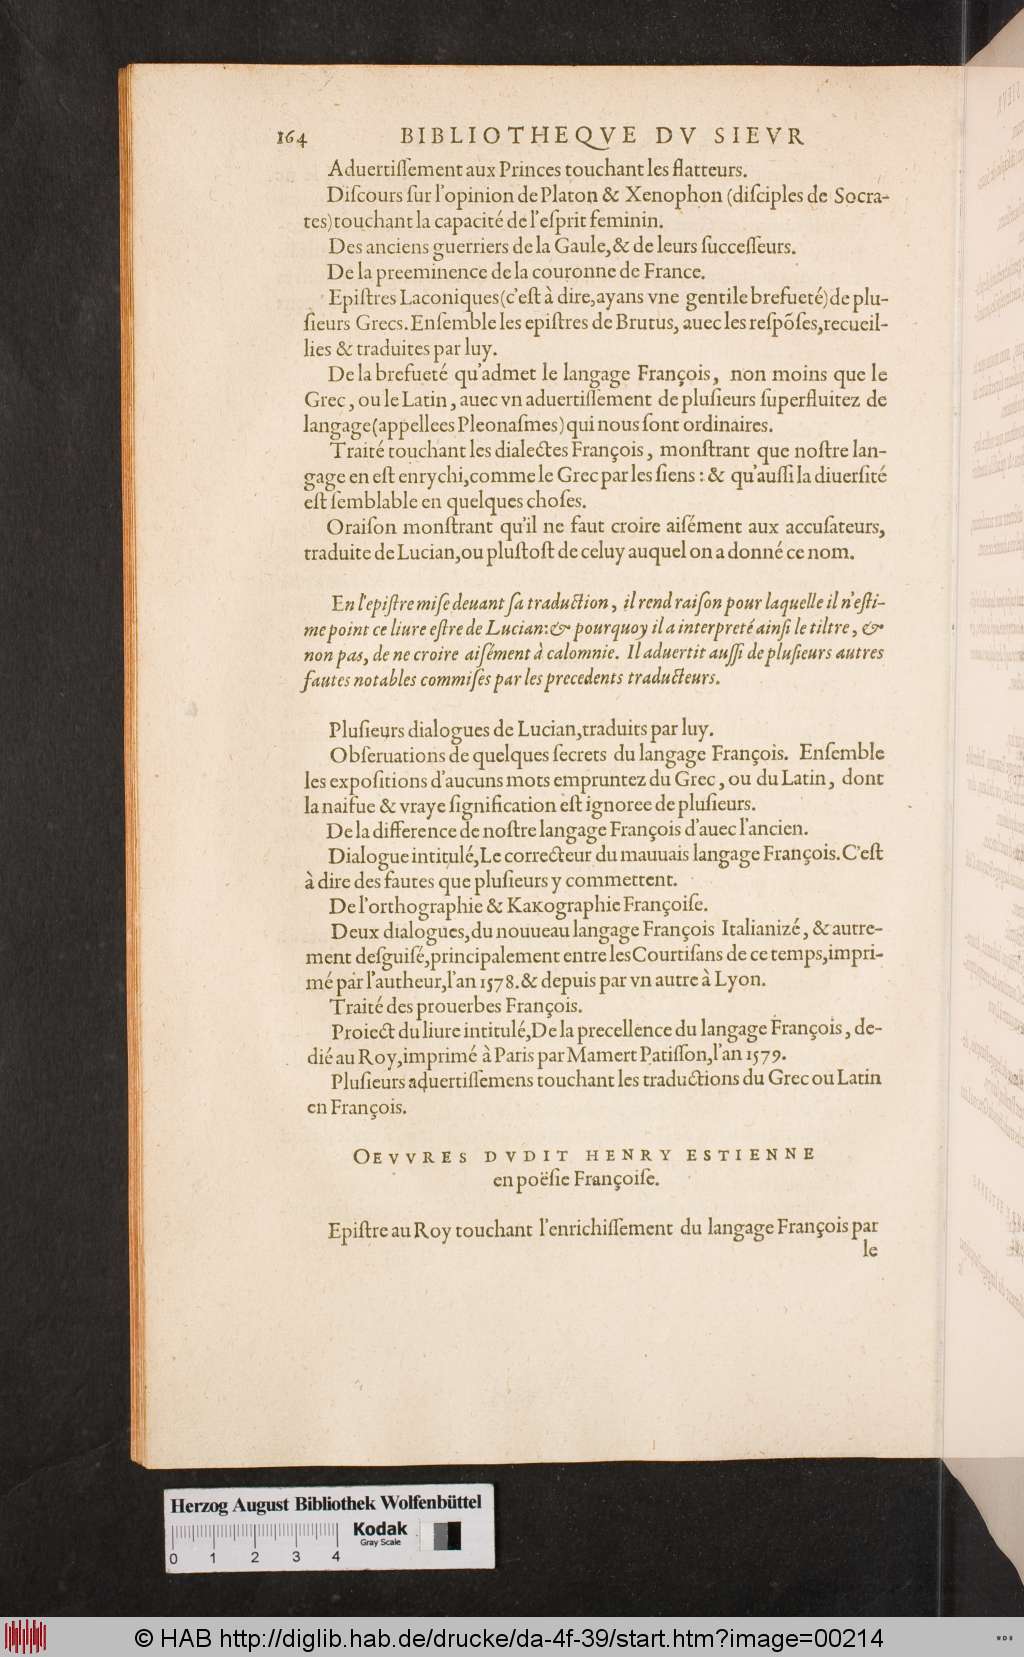 164 BIBLIOTHEQVE DV SIEVR
Aduertiſſement aux Princes touchant les flatteurs.
Diſcours ſur l'opinion de Platon & Xenophon (diſciples de Socra-
tes) touchant la capacité de l'eſprit feminin.
Des anciens guerriers de la Gaule, & de leurs ſucceſſeurs.
De la preeminence de la couronne de France.
Epiſtres Laconiques (c'eſt à dire, ayans vne gentile brefueté) de plu-
ſieurs Grecs. Enſemble les epiſtres de Brutus, auec les reſpõſes, recueil-
lies & traduites par luy.
De la brefueté qu'admet le langage François, non moins que le
Grec, ou le Latin, auec vn aduertiſſement de pluſieurs ſuperfluitez de
langage (appellees Pleonaſmes) qui nous ſont ordinaires.
Traité touchant les dialectes François, monſtrant que noſtre lan-
gage en eſt enrychi, comme le Grec par les ſiens : & qu'auſſi la diuerſité
eſt ſemblable en quelques choſes.
Oraiſon monſtrant qu'il ne faut croire aiſément aux accuſateurs,
traduite de Lucian, ou pluſtoſt de celuy auquel on a donné ce nom.
En l'epiſtre miſe deuant ſa traduction, il rend raiſon pour laquelle il n'eſti-
me point ce liure eſtre de Lucian: & pourquoy il a interpreté ainſi le tiltre, &
non pas, de ne croire aiſément à calomnie. Il aduertit auſſi de pluſieurs autres
fautes notables commiſes par les precedents traducteurs.
Pluſieurs dialogues de Lucian, traduits par luy.
Obſeruations de quelques ſecrets du langage François. Enſemble
les expoſitions d'aucuns mots empruntez du Grec, ou du Latin, dont
la naifue & vraye ſignification eſt ignoree de pluſieurs.
De la difference de noſtre langage François d'auec l'ancien.
Dialogue intitulé, Le correcteur du mauuais langage François. C'eſt
à dire des fautes que pluſieurs y commettent.
De l'orthographie & Kakographie Françoiſe.
Deux dialogues, du nouueau langage François Italianizé, & autre-
ment deſguiſé, principalement entre les Courtiſans de ce temps, impri-
mé par l'autheur, l'an 1578. & depuis par vn autre à Lyon.
Traité des prouerbes François.
Proiect du liure intitulé, De la precellence du langage François, de-
dié au Roy, imprimé à Paris par Mamert Patiſſon, l'an 1579.
Pluſieurs aduertiſſemens touchant les traductions du Grec ou Latin
en François.
OEVVRES DVDIT HENRY ESTIENNE
en poëſie Françoiſe.
Epiſtre au Roy touchant l'enrichiſſement du langage François par
le
Herzog August Bibliothek Wolfenbüttel
Kodak
Gray Scale
0 1 2 3 4
© HAB http://diglib.hab.de/drucke/da-4f-39/start.htm?image=00214